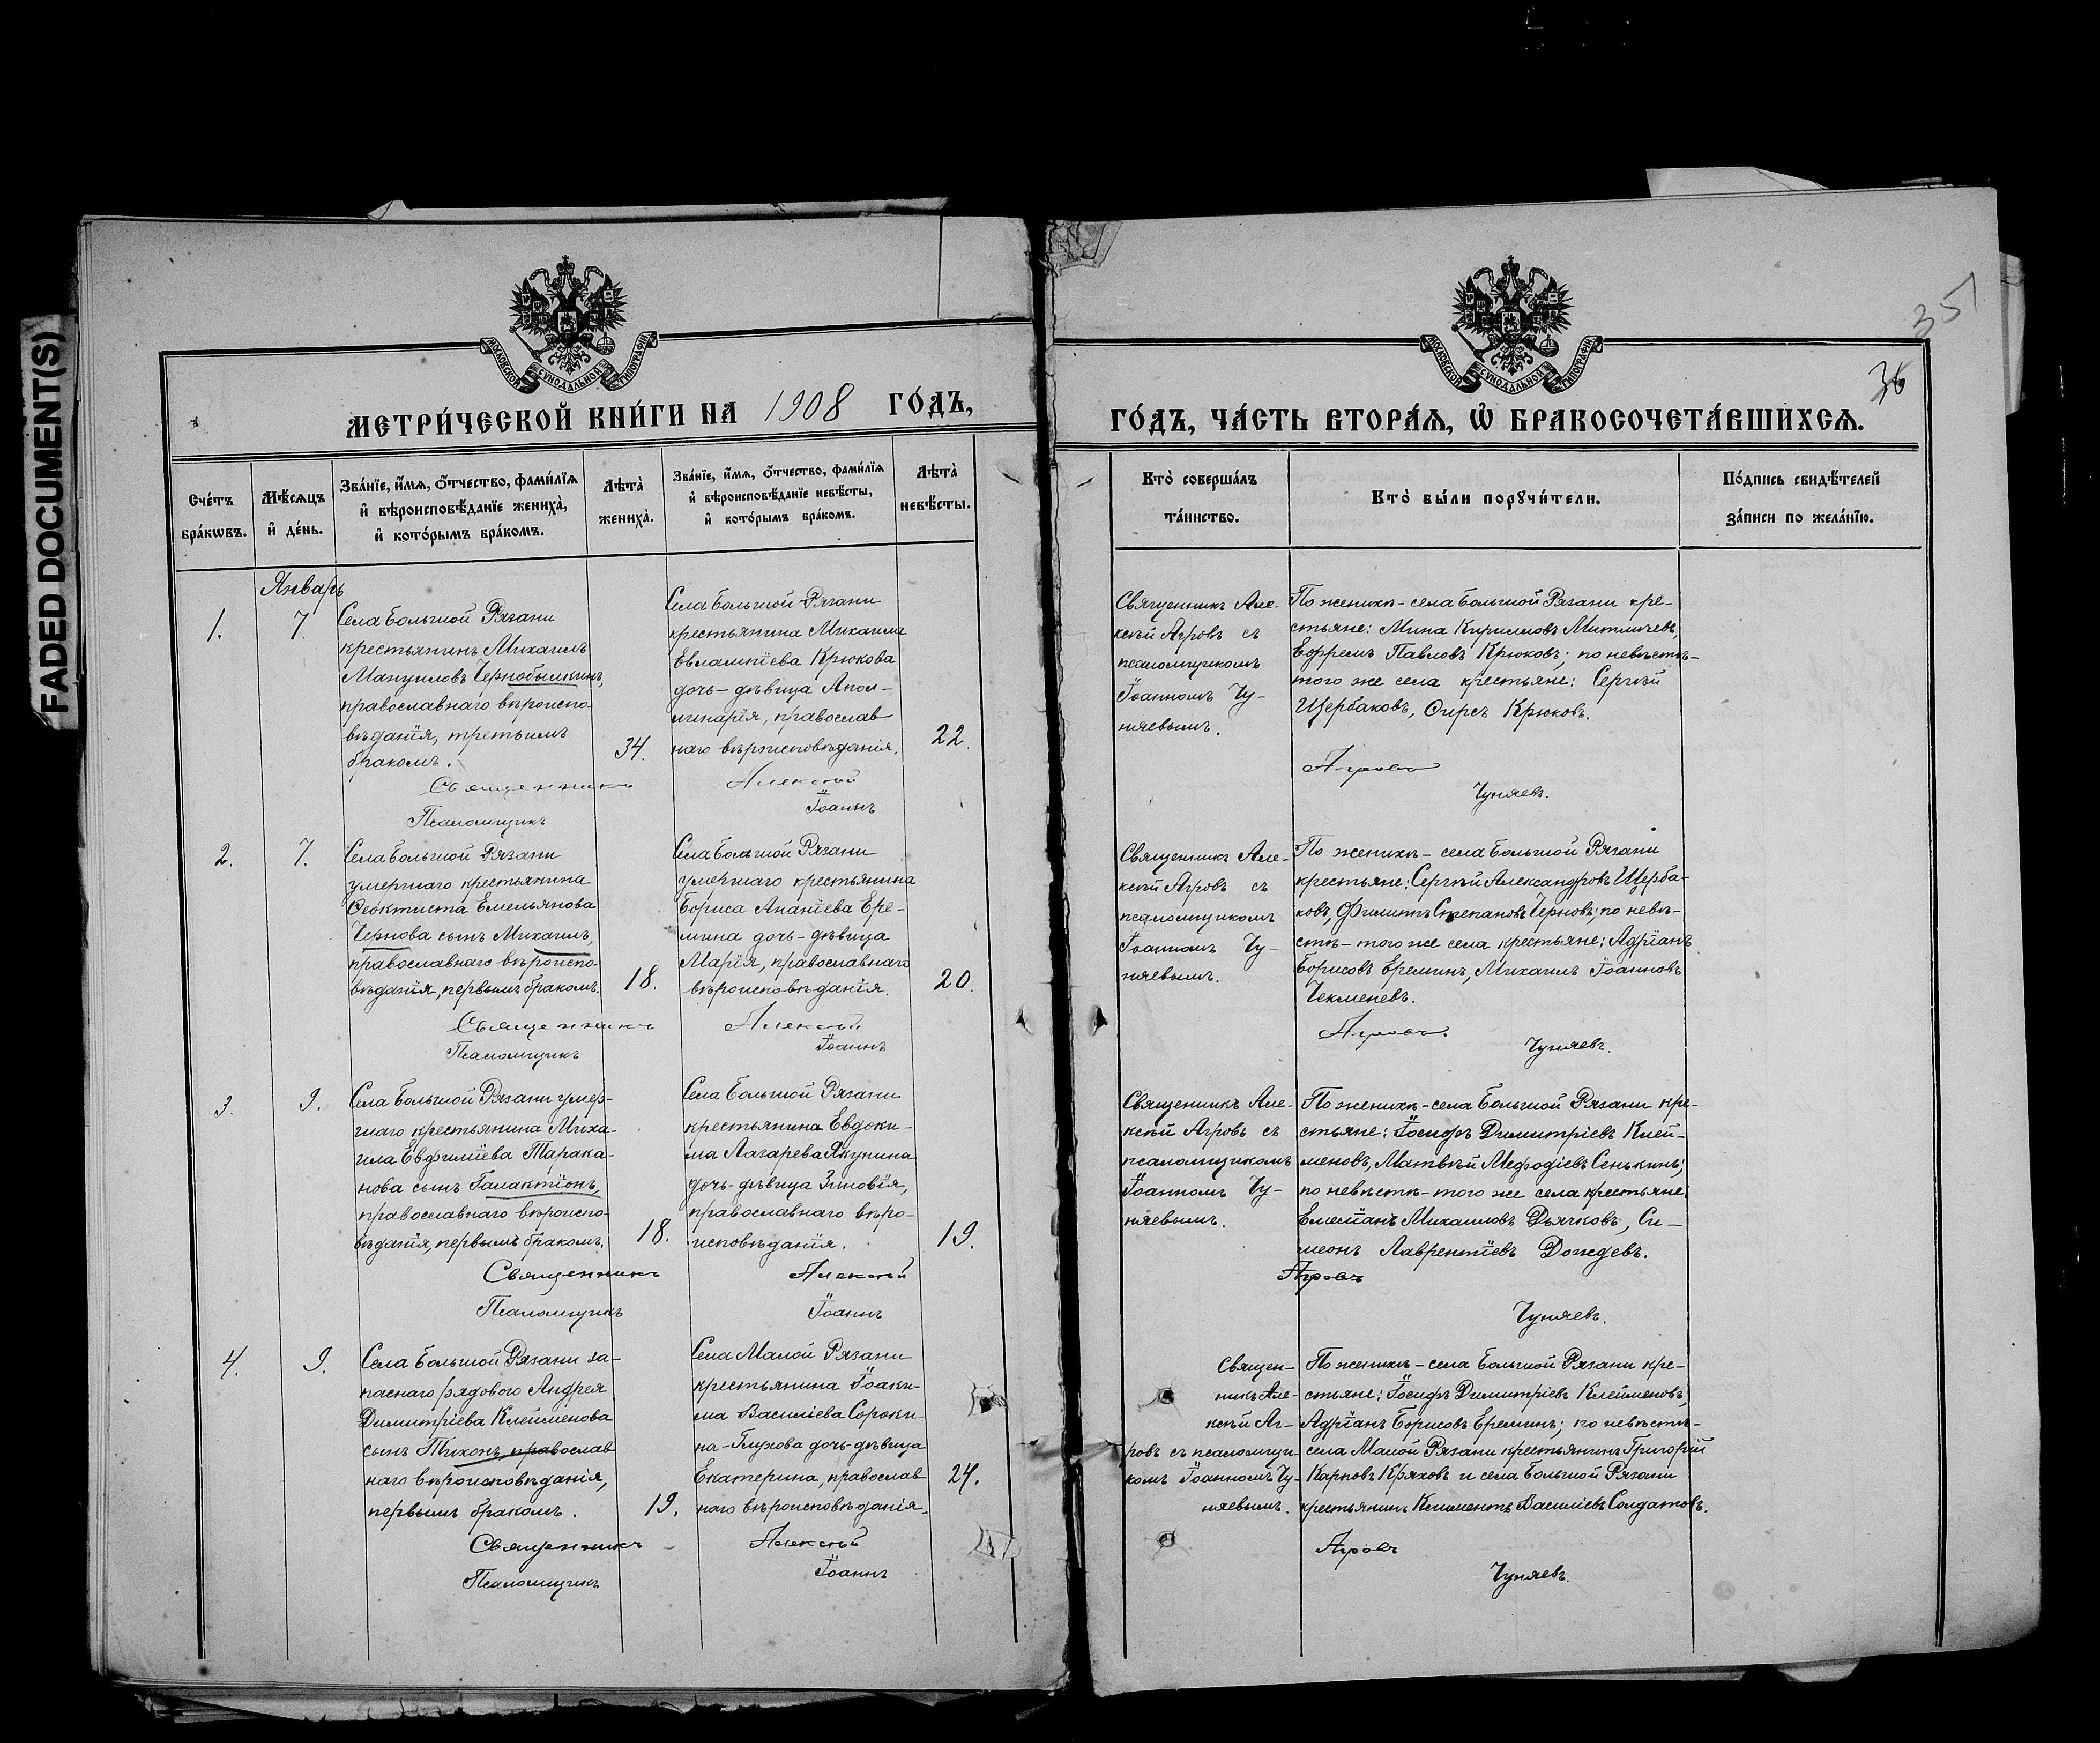 FADED DOCUMENT(S)
МОСКОВСКОЙ СѴНОДАЛЬНОЙ ТИПОГРАФІИ
МЕТРИ́ЧЕСКОЙ КНИ́ГИ НА 1908 ГО́ДЪ,
Сче́тъ бра́кѡвъ.
Мѣ́сяцъ и҆ де́нь.
Зва́нїе, и҆́мѧ, ѻ҆́тчество, фами́лїѧ
и҆ вѣроисповѣ́данїе жениха̀,
и҆ кото́рымъ бра́комъ.
Лѣта̀ жениха̀.
Зва́нїе, и҆́мѧ, ѻ҆́тчество, фами́лїѧ
и҆ вѣроисповѣ́данїе невѣ́сты,
и҆ кото́рымъ бра́комъ.
Лѣта̀ невѣ́сты.
Январь
1.
7.
Села Большой Рязани
крестьянинъ Михаилъ
Мануиловъ Чернобылкинъ,
православнаго вѣроиспо-
вѣданія, третьимъ
бракомъ.
34.
Села Большой Рязани
крестьянина Михаила
Евлампіева Крюкова
дочь - дѣвица Апол-
линарія, православ
наго вѣроисповѣданія.
22.
Священникъ Алексѣй
Псаломщикъ Іоаннъ
2.
7.
Села Большой Рязани
умершаго крестьянина
Ѳеоктиста Емельянова
Чернова сынъ Михаилъ,
православнаго вѣроиспо-
вѣданія, первымъ бракомъ.
18.
Села Большой Рязани
умершаго крестьянина
Бориса Ананіева Ере-
мина дочь - дѣвица
Марія, православнаго
вѣроисповѣданія.
20.
Священникъ Алексѣй
Псаломщикъ Іоаннъ
3.
9.
Села Большой Рязани умер-
шаго крестьянина Миха-
ила Евфиміева Тарака-
нова сынъ Галактіонъ,
православнаго вѣроиспо-
вѣданія, первымъ бракомъ.
18.
Села Большой Рязани
крестьянина Евдоки-
ма Лазарева Якунина
дочь - дѣвица Зиновія,
православнаго вѣро-
исповѣданія.
19.
Священникъ Алексѣй
Псаломщикъ Іоаннъ
4.
9.
Села Большой Рязани за-
паснаго рядового Андрея
Димитріева Клейменова
сынъ Тихонъ, православ
наго вѣроисповѣданія,
первымъ бракомъ.
19.
Села Малой Рязани
крестьянина Іоаки-
ма Васильева Сороки-
на - Глухова дочь - дѣвица
Екатерина, православ
наго вѣроисповѣданія.
24.
Священникъ Алексѣй
Псаломщикъ Іоаннъ
35
36
МОСКОВСКОЙ СѴНОДАЛЬНОЙ ТИПОГРАФІИ
ГО́ДЪ, ЧА́СТЬ ВТОРА́Ѧ, Ѡ҆ БРАКОСОЧЕТА́ВШИХСѦ.
Кто̀ соверша́лъ
та́инство.
Кто̀ бы́ли порꙋчи́тели.
По́дпись свидѣ́телей
за́писи по жела́нїю.
Священникъ Але-
ксѣй Агровъ съ
псаломщикомъ
Іоанномъ Чу-
няевымъ.
По женихѣ - села Большой Рязани кре-
стьяне: Мина Кирилловъ Митличевъ,
Ефремъ Павловъ Крюковъ; по невѣстѣ -
того же села крестьяне: Сергѣй
Щербаковъ, Ѳирсъ Крюковъ.
Агровъ
Чуняевъ.
Священникъ Але-
ксѣй Агровъ съ
псаломщикомъ
Іоанномъ Чу-
няевымъ.
По женихѣ - села Большой Рязани
крестьяне: Сергѣй Александровъ Щерба-
ковъ, Филиппъ Степановъ Черновъ; по невѣ-
стѣ - того же села крестьяне: Адріанъ
Борисовъ Ереминъ, Михаилъ Іоанновъ
Чекменевъ.
Агровъ.
Чуняевъ.
Священникъ Але-
ксѣй Агровъ съ
псаломщикомъ
Іоанномъ Чу-
няевымъ.
По женихѣ - села Большой Рязани кре-
стьяне: Іосифъ Димитріевъ Клей-
меновъ, Матвѣй Меѳодіевъ Сенькинъ;
по невѣстѣ - того же села крестьяне:
Емеліанъ Михаиловъ Дьячковъ, Си-
меонъ Лаврентіевъ Дождевъ.
Агровъ
Чуняевъ.
Священ-
никъ Але-
ксѣй Аг-
ровъ съ псаломщи-
комъ Іоанномъ Чу-
няевымъ.
По женихѣ - села Большой Рязани кре-
стьяне: Іосифъ Димитріевъ Клейменовъ,
Адріанъ Борисовъ Ереминъ; по невѣстѣ -
села Малой Рязани крестьянинъ Григорій
Карповъ Кряховъ и села Большой Рязани
крестьянинъ Климентъ Василіевъ Солдатовъ.
Агровъ
Чуняевъ.